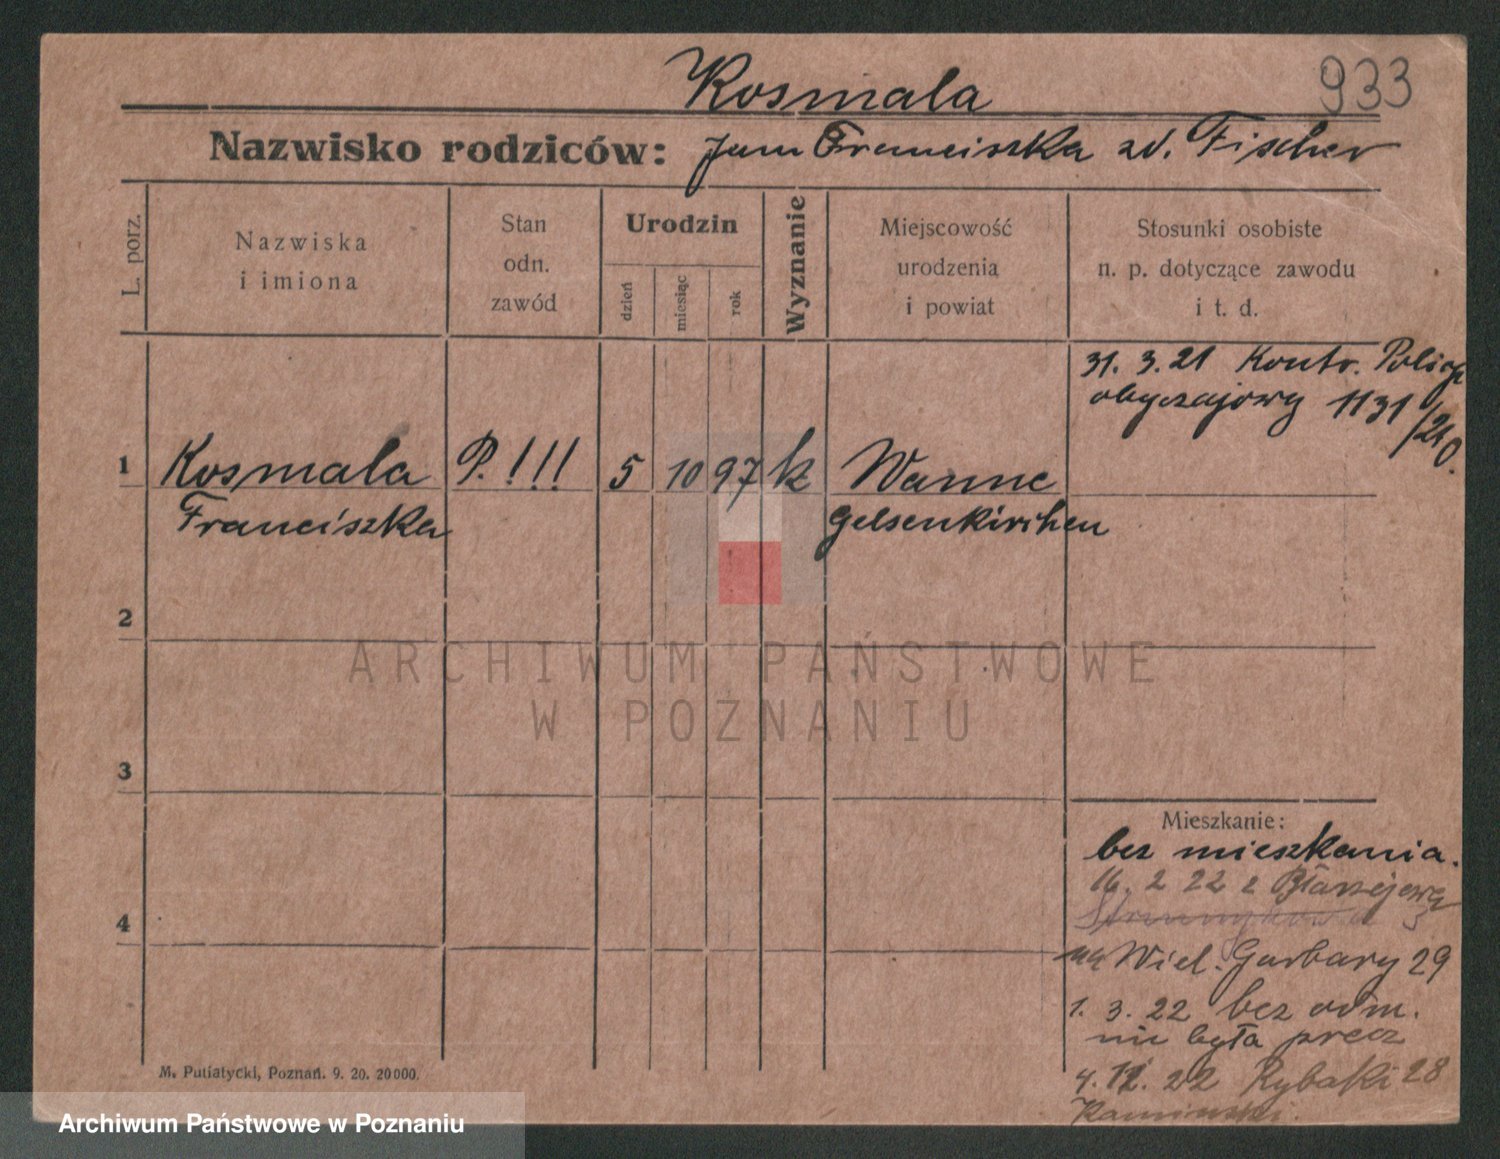 Kosmala
933
Nazwisko rodziców: Jan Franciszka zd. Fischer
L. porz.
Nazwiska
i imiona
Stan
odn.
zawód
Urodzin
dzień
miesiąc
rok
Wyznanie
Miejscowość
urodzenia
i powiat
Stosunki osobiste
n. p. dotyczące zawodu
i t. d.
31. 3. 21 Kontr. Policji
obyczajowy 1131/20.
1 Kosmala P. !!! 5 10 97 k Wanne
Franciszka Gelsenkirchen
2
ARCHIWUM PAŃSTWOWE
W POZNANIU
3
Mieszkanie:
bez mieszkania.
16. 2 22 z Błażejową
4
na Wiel. Garbary 29
1. 3. 22 bez odm.
nie była precz
4. 12. 22 Rybaki 28
Kaminski.
M. Putiatycki, Poznań. 9. 20. 20000.
Archiwum Państwowe w Poznaniu